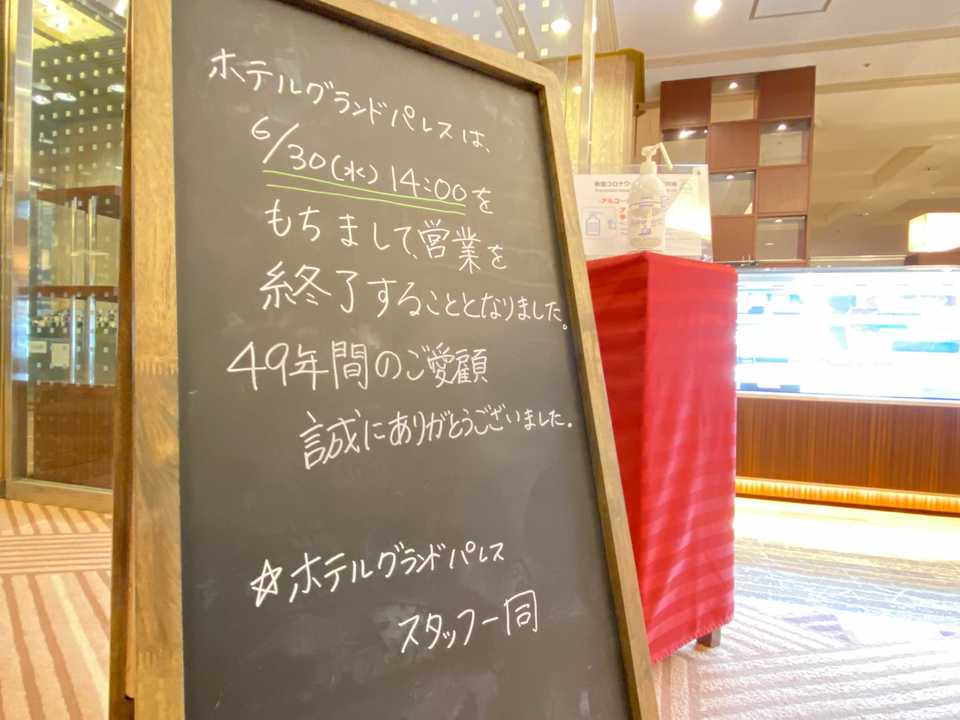 ホテルグランドパレスは、
6/30(水) 14:00を
もちまして、営業を
終了することとなりました。
49年間のご愛顧
誠にありがとうございました。
☆ホテルグランドパレス
スタッフ一同
新型コロナウ
アルコー